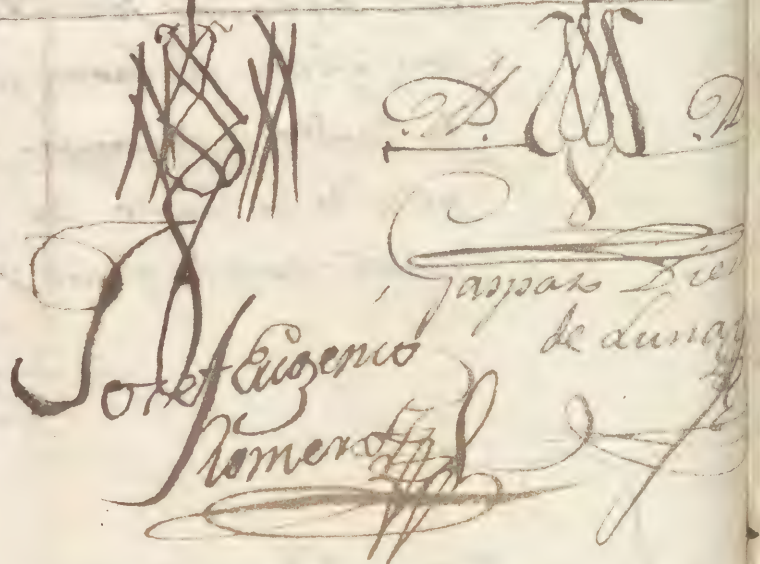 Joseph Eugenio
Romero
Gaspar Die
de Luna